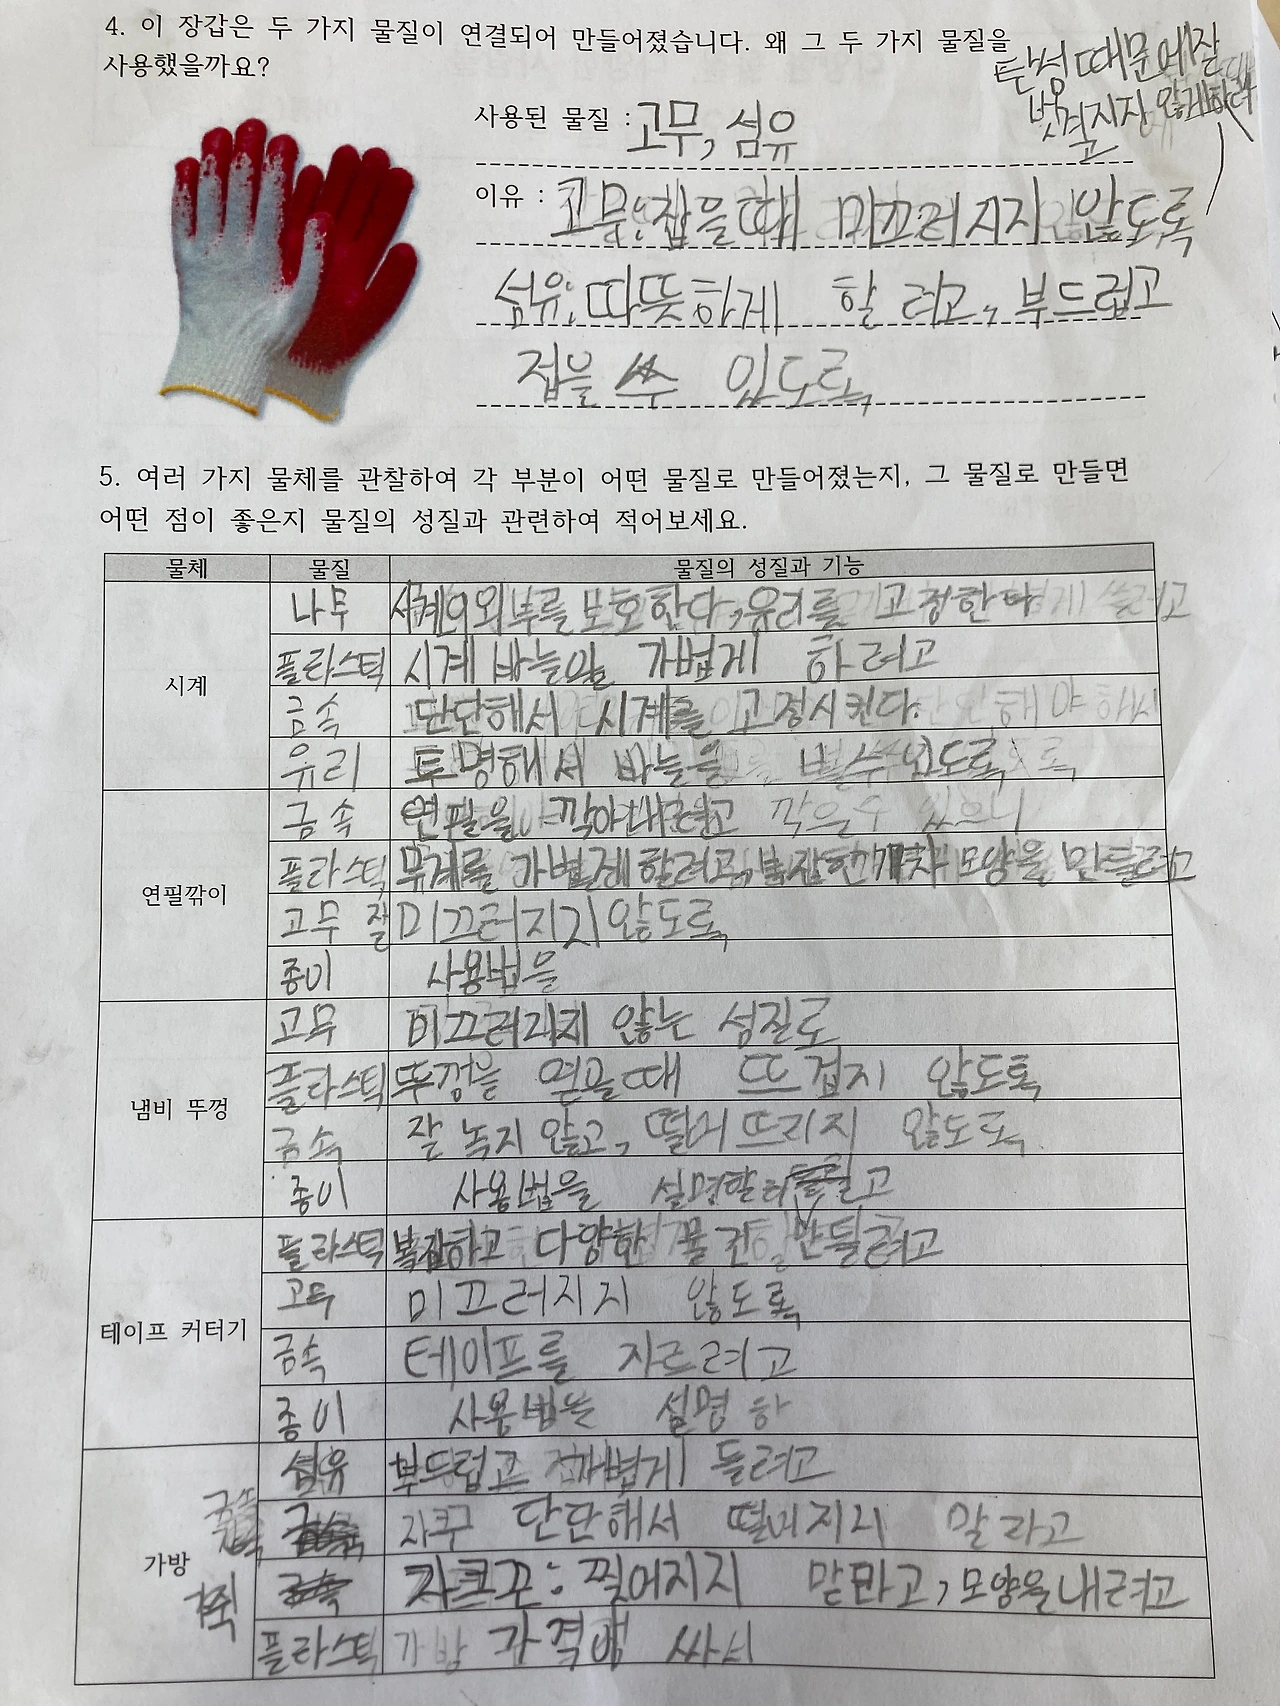 4. 이 장갑은 두 가지 물질이 연결되어 만들어졌습니다. 왜 그 두 가지 물질을
사용했을까요?
탄성 때문에 잘
벗겨지지 않게
사용된 물질 : 고무, 섬유
이유 : 고무: 잡을 때 미끄러지지 않도록
섬유: 따뜻하게 할려고, 부드럽고
접을 수 있도록
5. 여러 가지 물체를 관찰하여 각 부분이 어떤 물질로 만들어졌는지, 그 물질로 만들면
어떤 점이 좋은지 물질의 성질과 관련하여 적어보세요.
물체 물질 물질의 성질과 기능
시계
나무 시계의 외부를 보호한다, 유리를 고정한다
플라스틱 시계 바늘을 가볍게 하려고
금속 단단해서 시계를 고정시킨다.
유리 투명해서 바늘을 볼 수 있도록
연필깎이
금속 연필을 깍아내려고
플라스틱 무게를 가볍게 할려고, 모양을 만들려고
고무 잘 미끄러지지 않도록
종이 사용법을
냄비 뚜껑
고무 미끄러지지 않는 성질로
플라스틱 뚜껑을 열을 때 뜨겁지 않도록
금속 잘 녹지 않고, 떨어뜨리지 않도록
종이 사용법을 설명할려고
테이프 커터기
플라스틱 복잡하고 다양한 물건 만들려고
고무 미끄러지지 않도록
금속 테이프를 자르려고
종이 사용법을 설명하
가방
섬유 부드럽고 가볍게 들려고
금속 자꾸 단단해서 떨어지지 말라고
가죽 찢어지지 말라고, 모양을 내려고
플라스틱 가방 가격 싸서